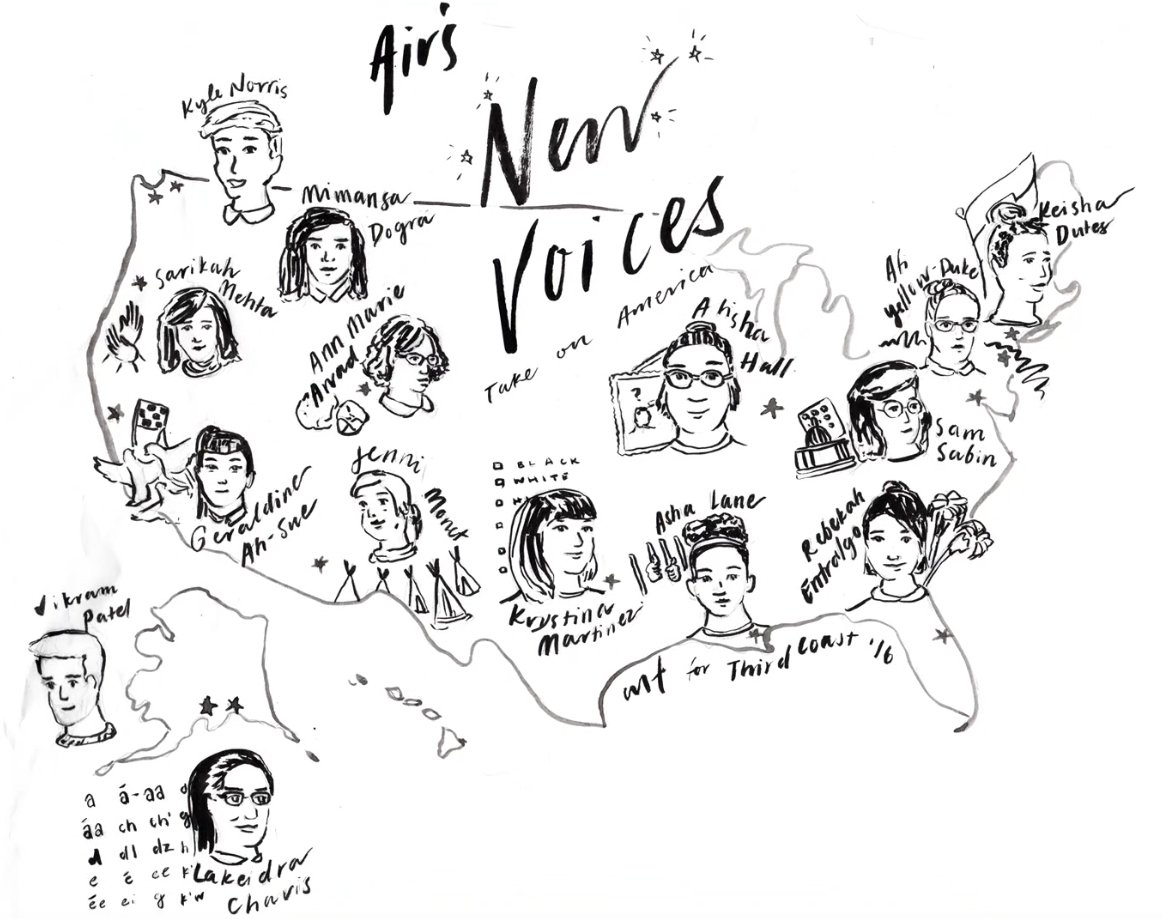 Air's
New
Voices
Take on America
Kyle Norris
Mimansa
Dogra
Sarikah
Mehta
Ann Marie
Awad
Geraldine
Ah-Sue
Jenni
Monet
BLACK
WHITE
Krystina
Martinez
Alisha
Hall
?
Asha Lane
Keisha
Dutes
Ah
yellow-Duke
Sam
Sabin
Rebekah
Entralgo
art for Third Coast '16
Vikram
Patel
a á-aa
áa ch ch' g
d dl dz h
e é ee k'
ée ei g k'w
Lakeidra
Chavis